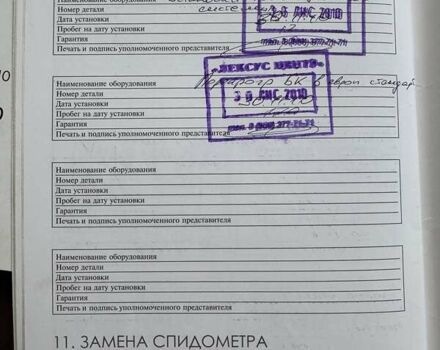 Наименование оборудования
Номер детали системы
Дата установки
Пробег на дату установки
Гарантия
Печать и подпись уполномоченного представителя
30 ЛИС 2010
"ЛЕКСУС ЦЕНТР"
Наименование оборудования БК в европ стандарт
Номер детали
Дата установки 30 ЛИС 2010
Пробег на дату установки
Гарантия
Печать и подпись уполномоченного представителя
Наименование оборудования
Номер детали
Дата установки
Пробег на дату установки
Гарантия
Печать и подпись уполномоченного представителя
Наименование оборудования
Номер детали
Дата установки
Пробег на дату установки
Гарантия
Печать и подпись уполномоченного представителя
11. ЗАМЕНА СПИДОМЕТРА